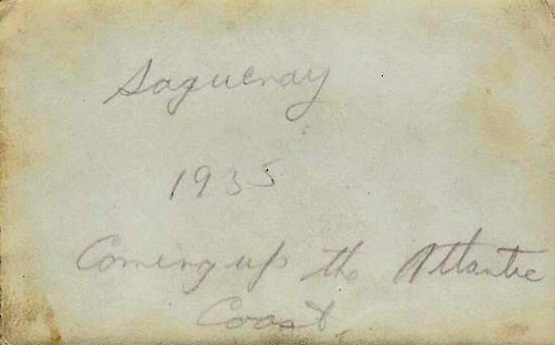 Saguenay
1935
Coming up the Atlantic
Coast.